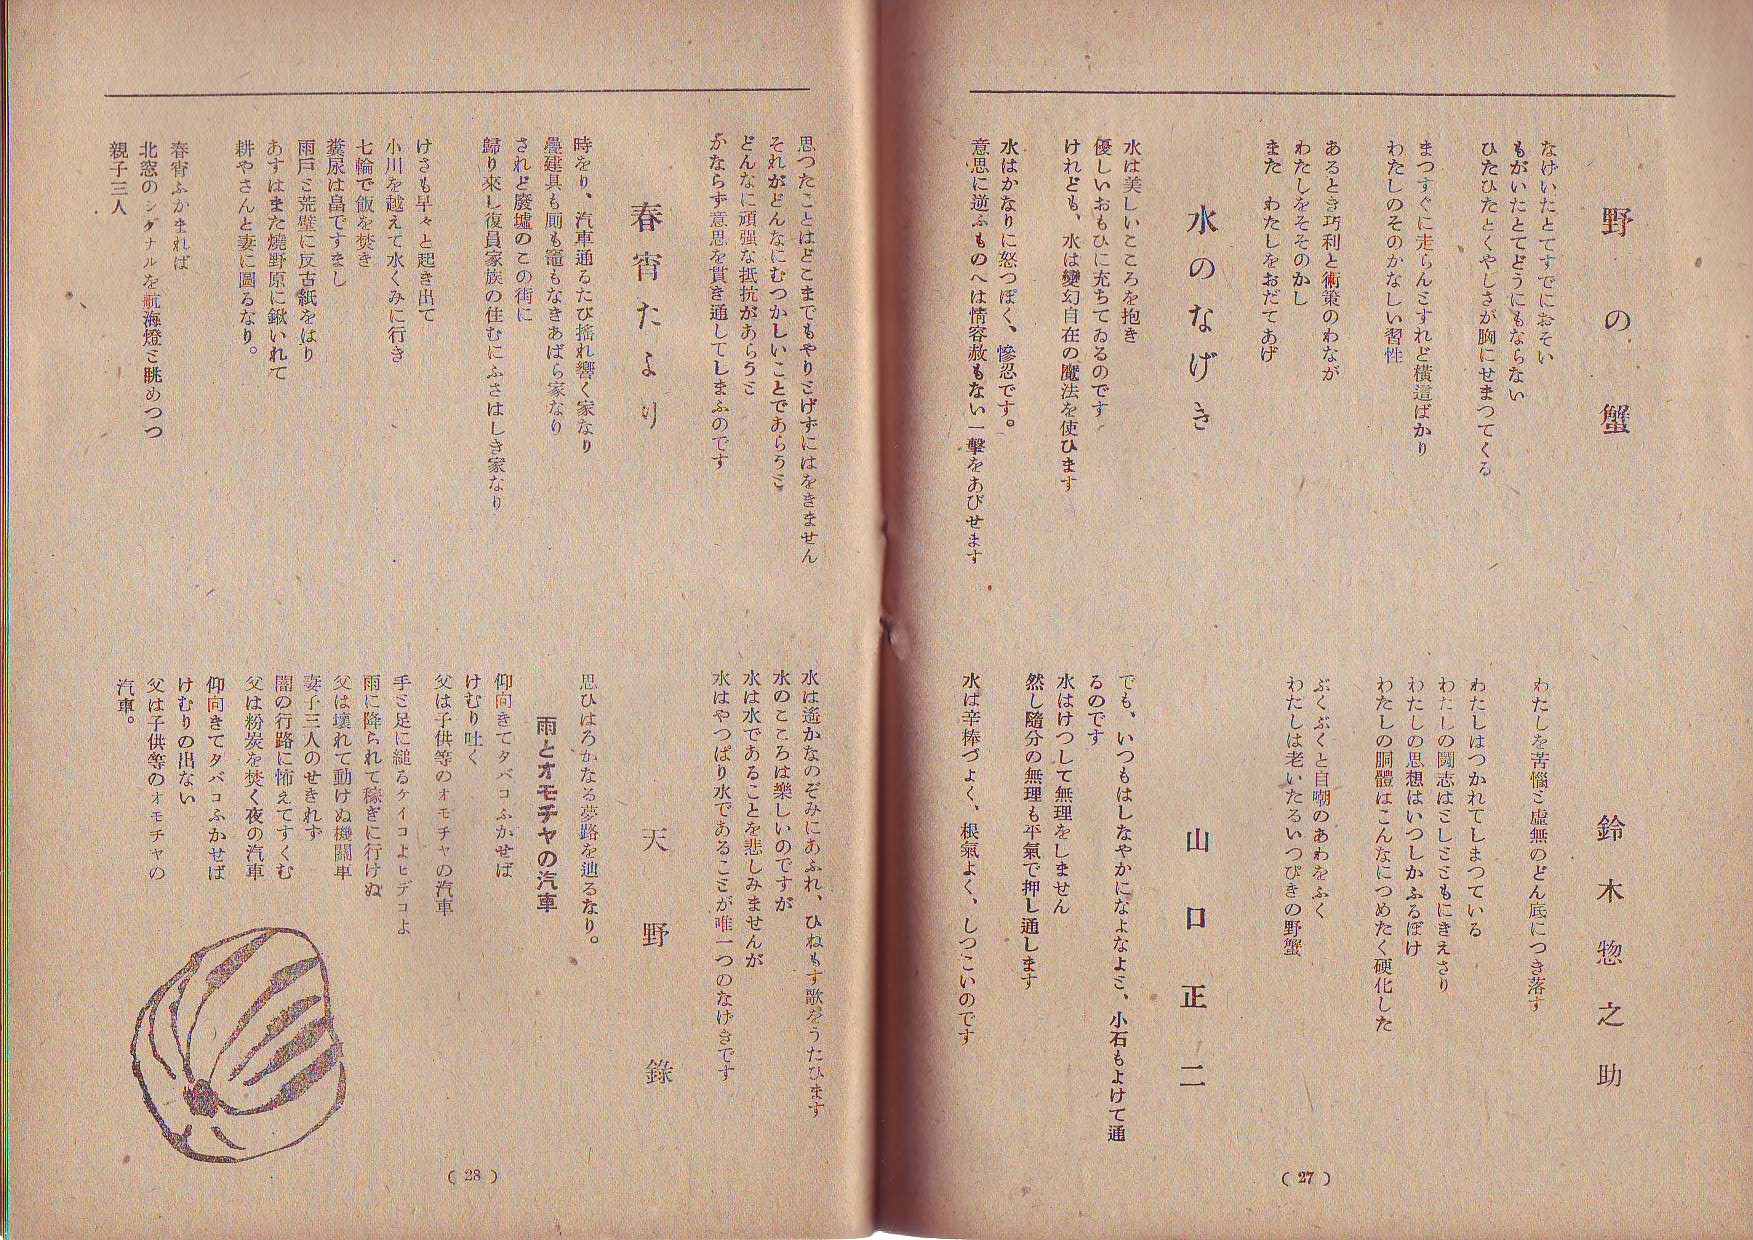 野の蟹
鈴木惣之助
なげいたとてすでにおそい
もがいたとてどうにもならない
ひたひたとくやしさが胸にせまつてくる
まつすぐに走らんとすれど横這ばかり
わたしのそのかなしい習性
あるとき巧利と術策のわなが
わたしをそそのかし
また わたしをおだてあげ
わたしを苦惱と虛無のどん底につき落す
わたしはつかれてしまつている
わたしの鬪志はとしとともにきえさり
わたしの思想はいつしかふるぼけ
わたしの胴體はこんなにつめたく硬化した
ぶくぶくと自嘲のあわをふく
わたしは老いたるいつぴきの野蟹
水のなげき
山口正二
水は美しいこころを抱き
優しいおもひに充ちてゐるのです
けれども、水は變幻自在の魔法を使ひます
水はかなりに怒つぽく、慘忍です。
意思に逆ふものへは情容赦もない一擊をあびせます
でも、いつもはしなやかになよなよと、小石もよけて通
るのです
水はけつして無理をしません
然し隨分の無理も平氣で押し通します
水は辛棒づよく、根氣よく、しつこいのです
(27)
思つたことはどこまでもやりとげずにはをきません
それがどんなにむつかしいことであらうと
どんなに頑强な抵抗があらうと
かならず意思を貫き通してしまふのです
水は遙かなのぞみにあふれ、ひねもす歌をうたひます
水のこころは樂しいのですが
水は水であることを悲しみませんが
水はやつぱり水であることが唯一つのなげきです
春宵たより
天野錄
時をり、汽車通るたび搖れ響く家なり
疊建具も厠も竈もなきあばら家なり
されど廢墟のこの街に
歸り來し復員家族の住むにふさはしき家なり
けさも早々と起き出て
小川を越えて水くみに行き
七輪で飯を焚き
糞尿は畠ですまし
雨戸と荒壁に反古紙をはり
あすはまた燒野原に鍬いれて
耕やさんと妻に圖るなり。
春宵ふかまれば
北窓のシグナルを航海燈と眺めつつ
親子三人
思ひはろかなる夢路を辿るなり。
雨とオモチヤの汽車
仰向きてタバコふかせば
けむり吐く
父は子供等のオモチヤの汽車
手と足に縋るケイコよヒデコよ
雨に降られて稼ぎに行けぬ
父は壞れて動けぬ機關車
妻子三人のせきれず
闇の行路に怖えてすくむ
父は粉炭を焚く夜の汽車
仰向きてタバコふかせば
けむりの出ない
父は子供等のオモチヤの
汽車。
(28)